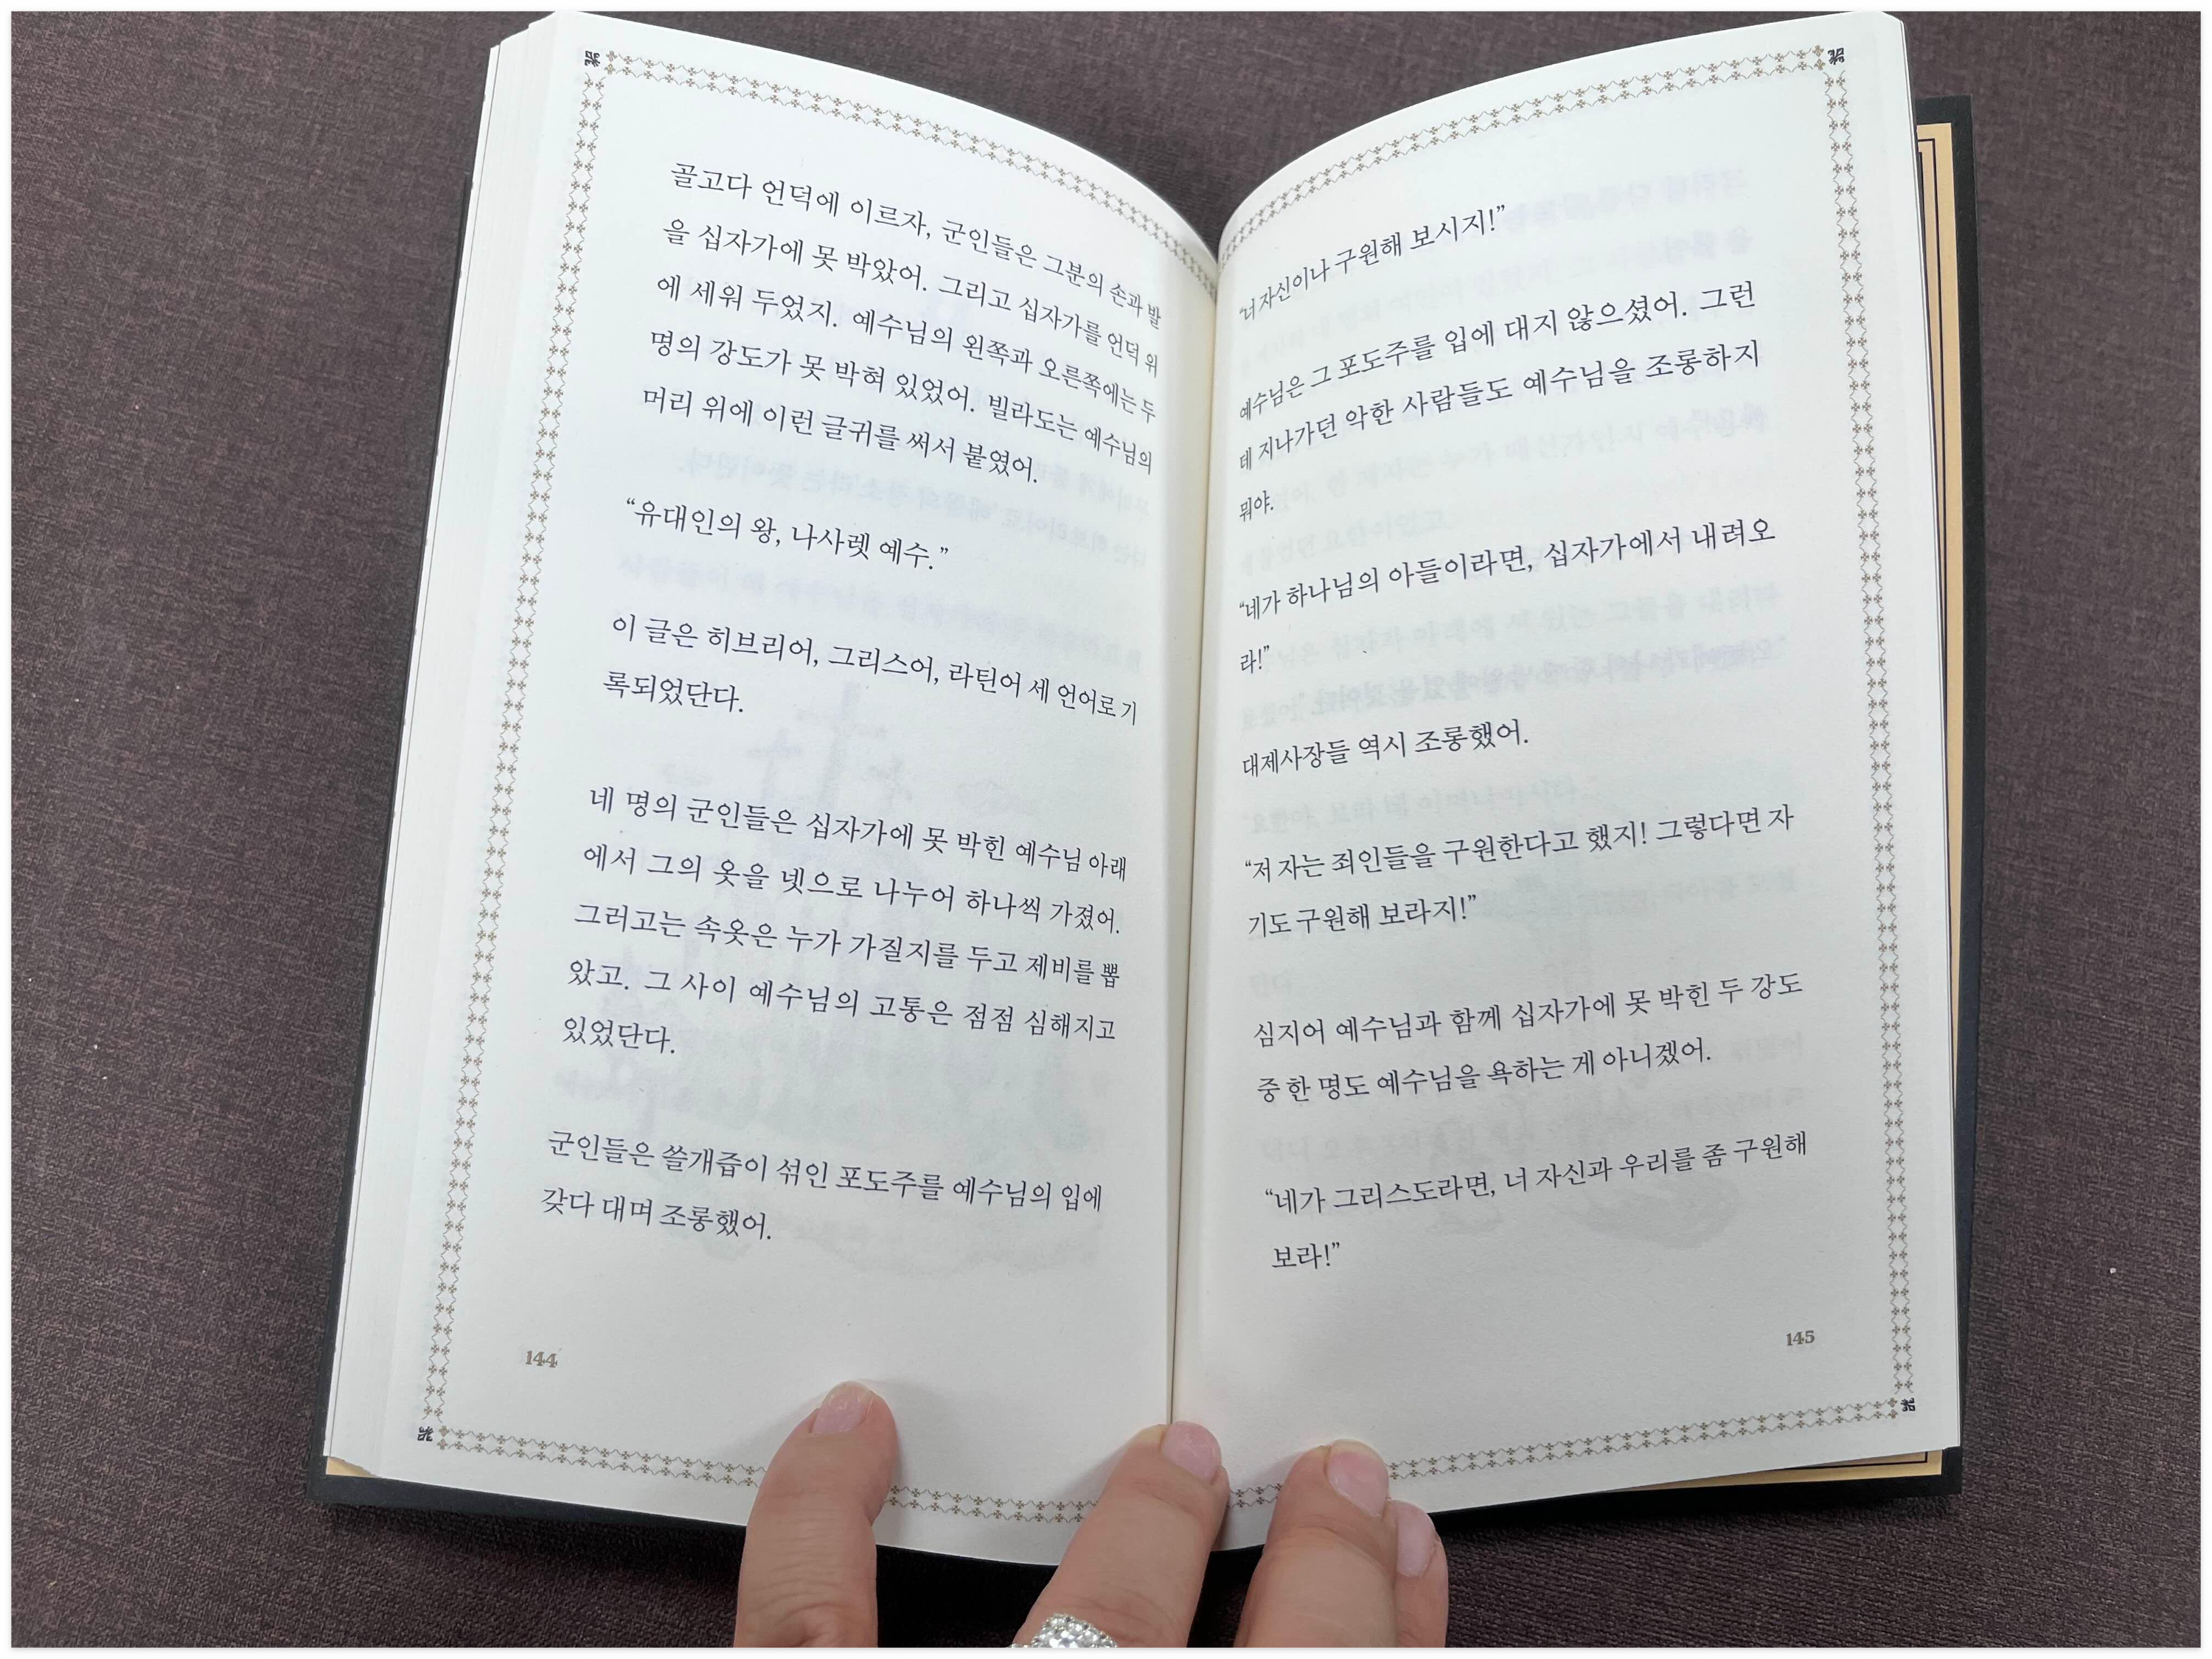 골고다 언덕에 이르자, 군인들은 그분의 손과 발
을 십자가에 못 박았어. 그리고 십자가를 언덕 위
에 세워 두었지. 예수님의 왼쪽과 오른쪽에는 두
명의 강도가 못 박혀 있었어. 빌라도는 예수님의
머리 위에 이런 글귀를 써서 붙였어.
“유대인의 왕, 나사렛 예수.”
이 글은 히브리어, 그리스어, 라틴어 세 언어로 기
록되었단다.
네 명의 군인들은 십자가에 못 박힌 예수님 아래
에서 그의 옷을 넷으로 나누어 하나씩 가졌어.
그러고는 속옷은 누가 가질지를 두고 제비를 뽑
았고. 그 사이 예수님의 고통은 점점 심해지고
있었단다.
군인들은 쓸개즙이 섞인 포도주를 예수님의 입에
갖다 대며 조롱했어.
144
“너 자신이나 구원해 보시지!”
예수님은 그 포도주를 입에 대지 않으셨어. 그런
데 지나가던 악한 사람들도 예수님을 조롱하지
뭐야.
“네가 하나님의 아들이라면, 십자가에서 내려오
라!”
대제사장들 역시 조롱했어.
“저 자는 죄인들을 구원한다고 했지! 그렇다면 자
기도 구원해 보라지!”
심지어 예수님과 함께 십자가에 못 박힌 두 강도
중 한 명도 예수님을 욕하는 게 아니겠어.
“네가 그리스도라면, 너 자신과 우리를 좀 구원해
보라!”
145